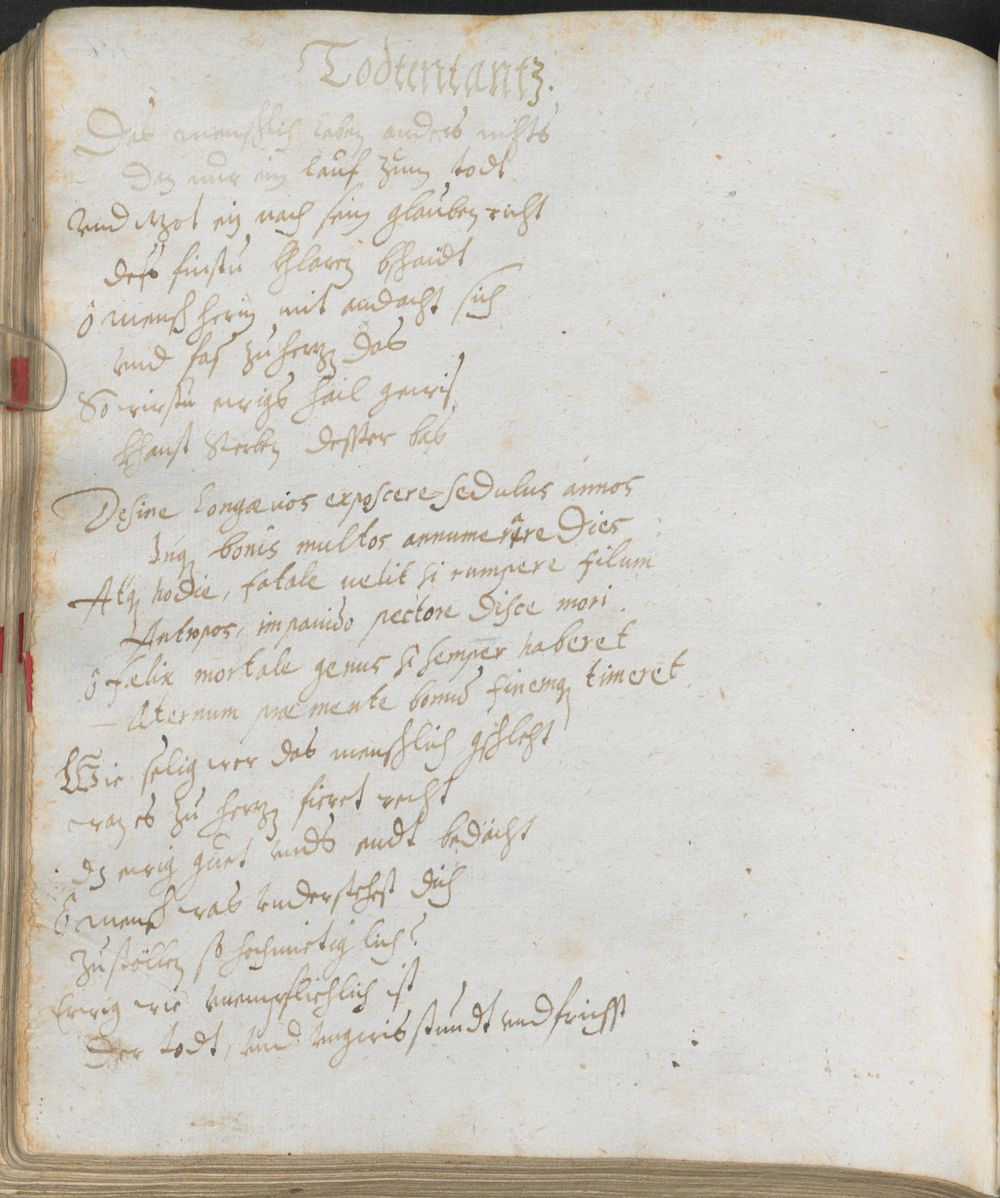 Todtentantz.
Das menschlich leben anders nichts
Dan nur ein lauf zum todt
Vnd Gott ein nach seim glauben richt
dess finstu khlaren bschaidt
O mensch hierin mit andacht sich
vnd fas zu hertzen das
So wirstu ewigs hail gewis
khanst Sterben desster bas
Desine longæuos exposcere sedulus annos
Inq bonis multos annumerare Dies
Atq hodie, fatale uelit si rumpere filum
Antropos, impauido pectore Disce mori.
O fælix mortale genus si semper haberet
Æternum præ mente bonum finemq timeret.
Wie selig wer das menschlich gschlecht
wan es zu hertzen fieret recht
dz ewig guet vnds endt bedächt
O mensch was vnderstehst dich
Zu stöllen so hochmietiglich?
Erweg wie vnentpfliehlich ist
Der todt, vnd vngwis stundt vnd frisst